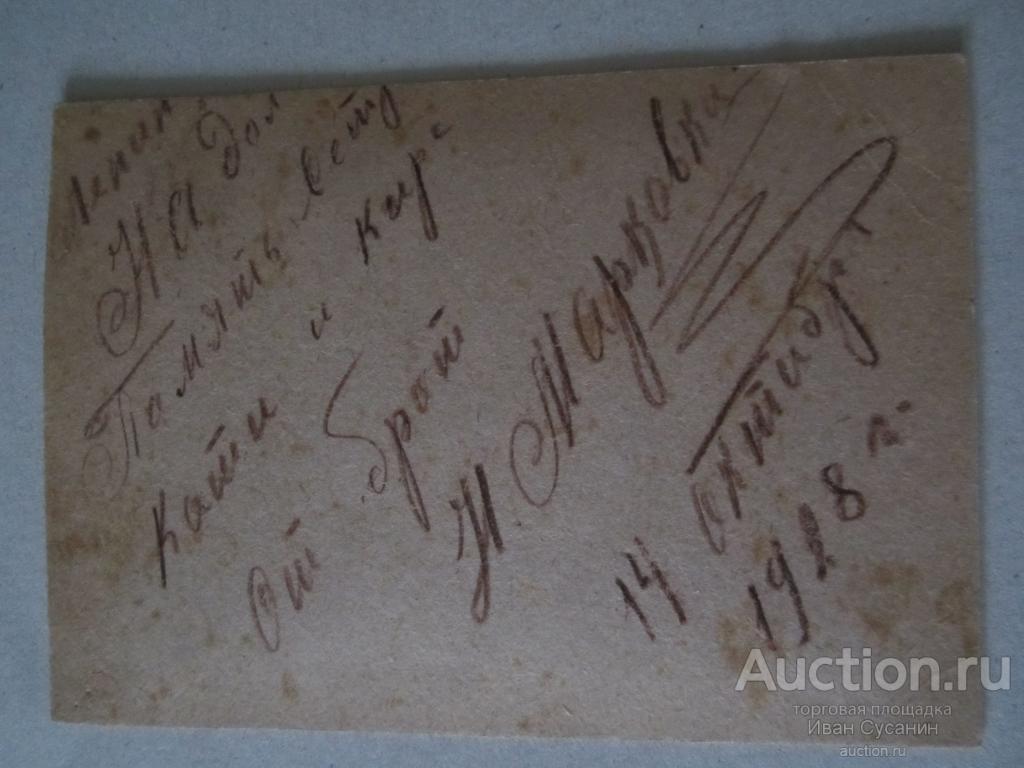 На дол
Память
Кати и кир
От брат
Н Марковка
14 октибр
1928 г.
Auction.ru
торговая площадка
Иван Сусанин
auction.ru